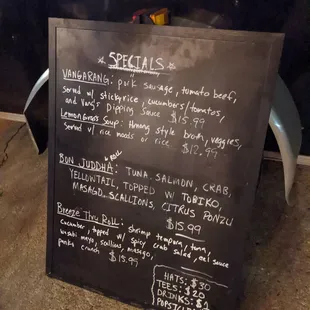 SPECIALS
VANGARANG: pork sausage, tomato beef,
served w/ sticky rice, cucumbers/tomatoes,
and Vang's Dipping Sauce $15.99
Lemongrass Soup: Hmong style broth, veggies,
served w/ rice noods or rice. $12.99
BON JUDDHA: ROLL TUNA, SALMON, CRAB,
YELLOWTAIL, TOPPED W/ TOBIKO,
MASAGO, SCALLIONS, CITRUS PONZU
$15.99
Breeze Thru Roll: shrimp tempura, tuna,
cucumber, topped w/ spicy crab salad, eel sauce
wasabi mayo, scallions, masago,
panko crunch $13.99
HATS: $30
TEES: $20
DRINKS: $
POPSICLE